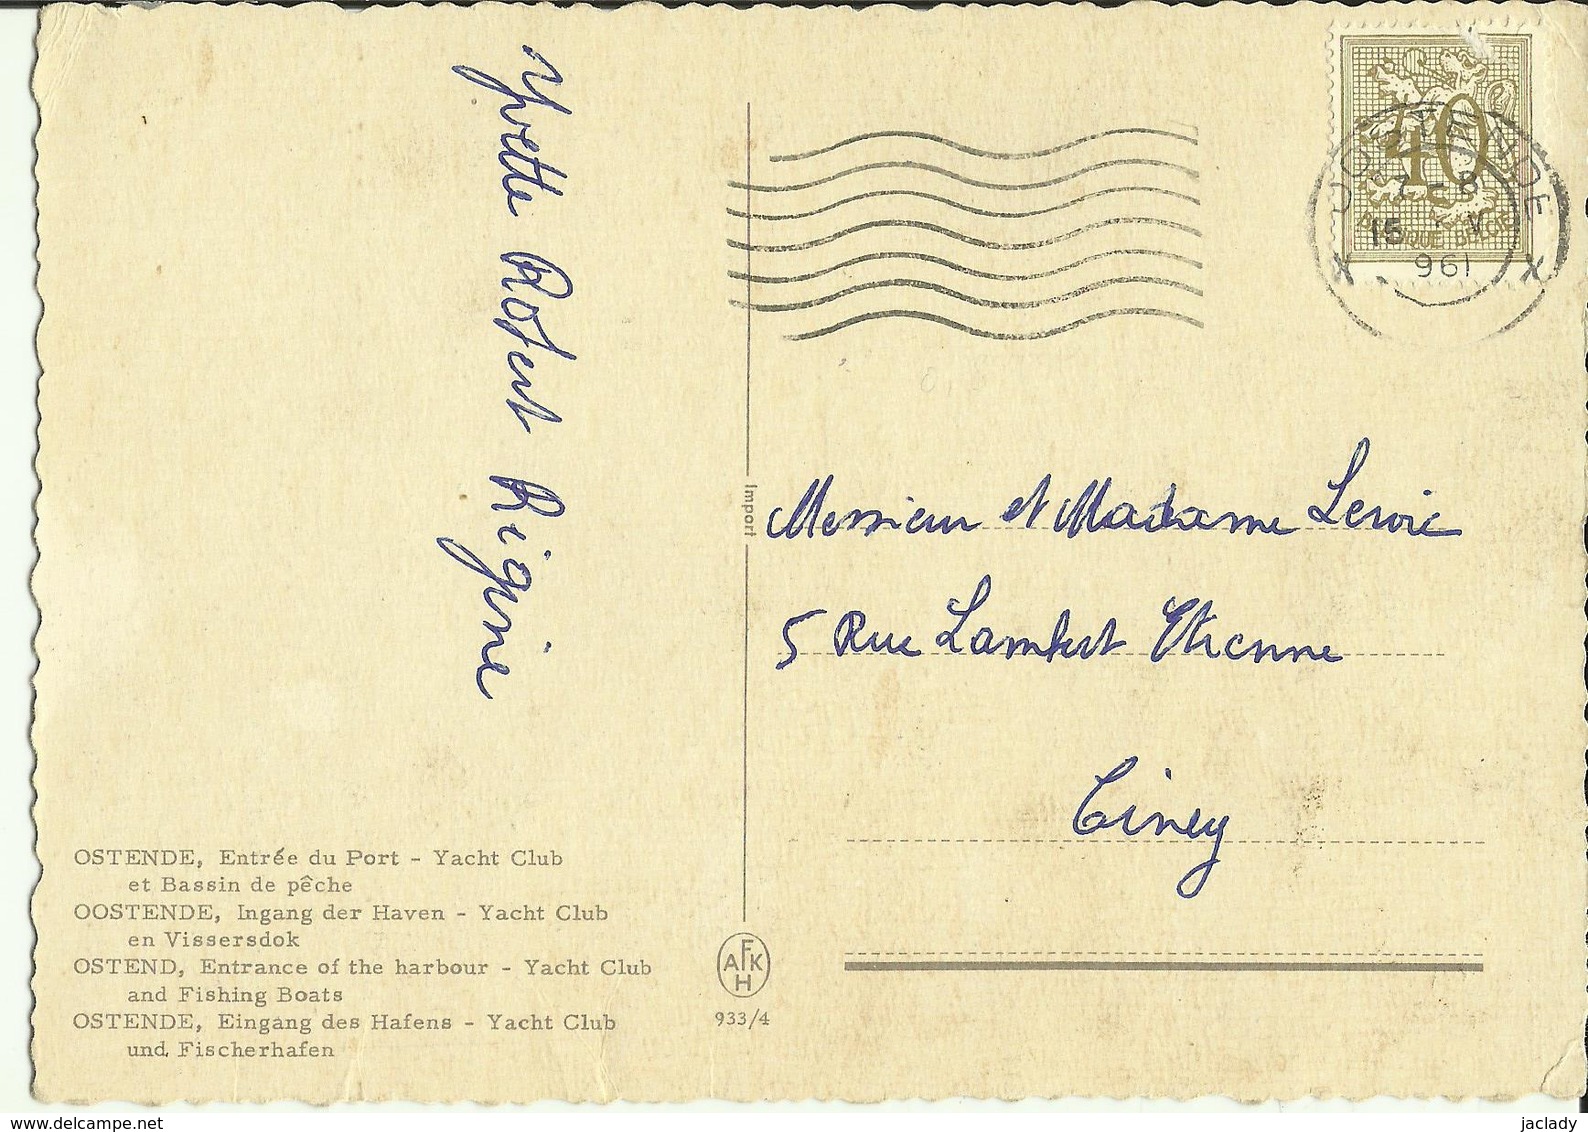 Yvette Robert Régine
40
BELGIQUE BELGIE
15
961
Import
Monsieur et Madame Leroie
5 Rue Lambert Etienne
Ciney
OSTENDE, Entrée du Port - Yacht Club
et Bassin de pêche
OOSTENDE, Ingang der Haven - Yacht Club
en Vissersdok
OSTEND, Entrance of the harbour - Yacht Club
and Fishing Boats
OSTENDE, Eingang des Hafens - Yacht Club
und Fischerhafen
AFKH
933/4
delcampe.net
jaclady